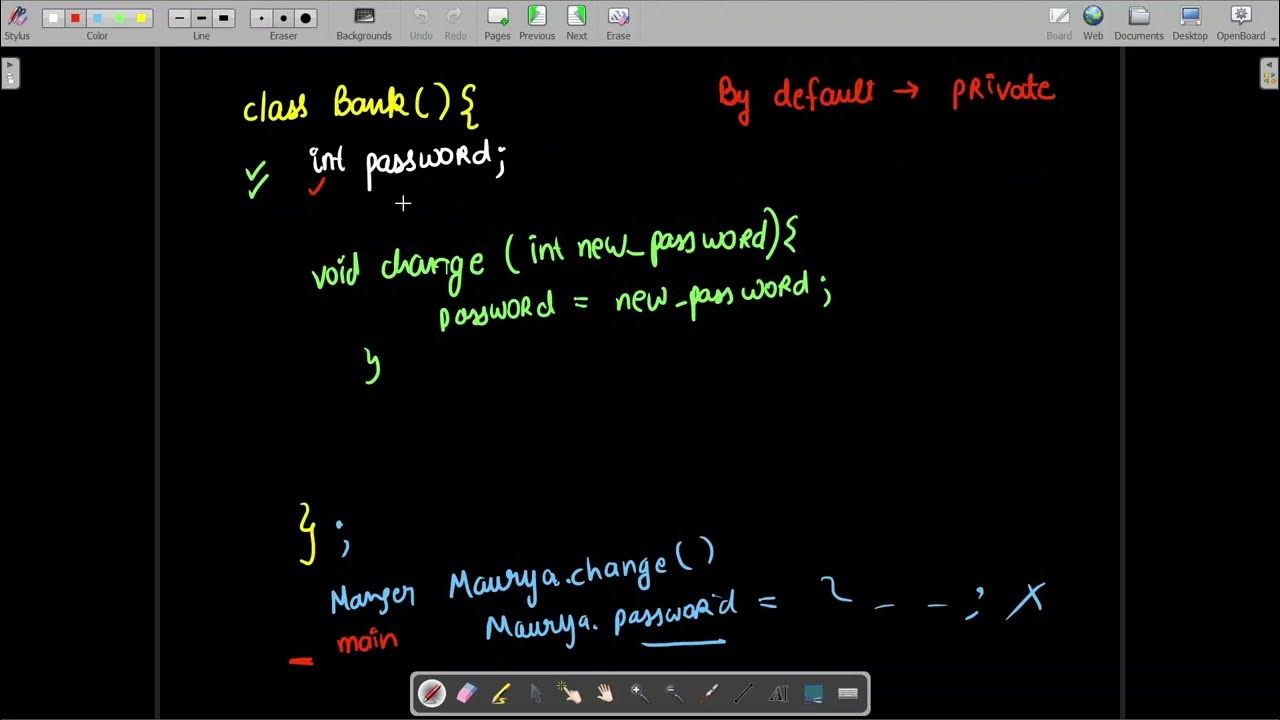 Stylus Color Line Eraser Backgrounds Undo Redo Pages Previous Next Erase Board Web Documents Desktop OpenBoard
class Bank(){
By default → private
int password;
void change (int new_password){
password = new_password;
}
};
Manger Maurya.change()
Maurya. password = 2 _ _ ; X
main